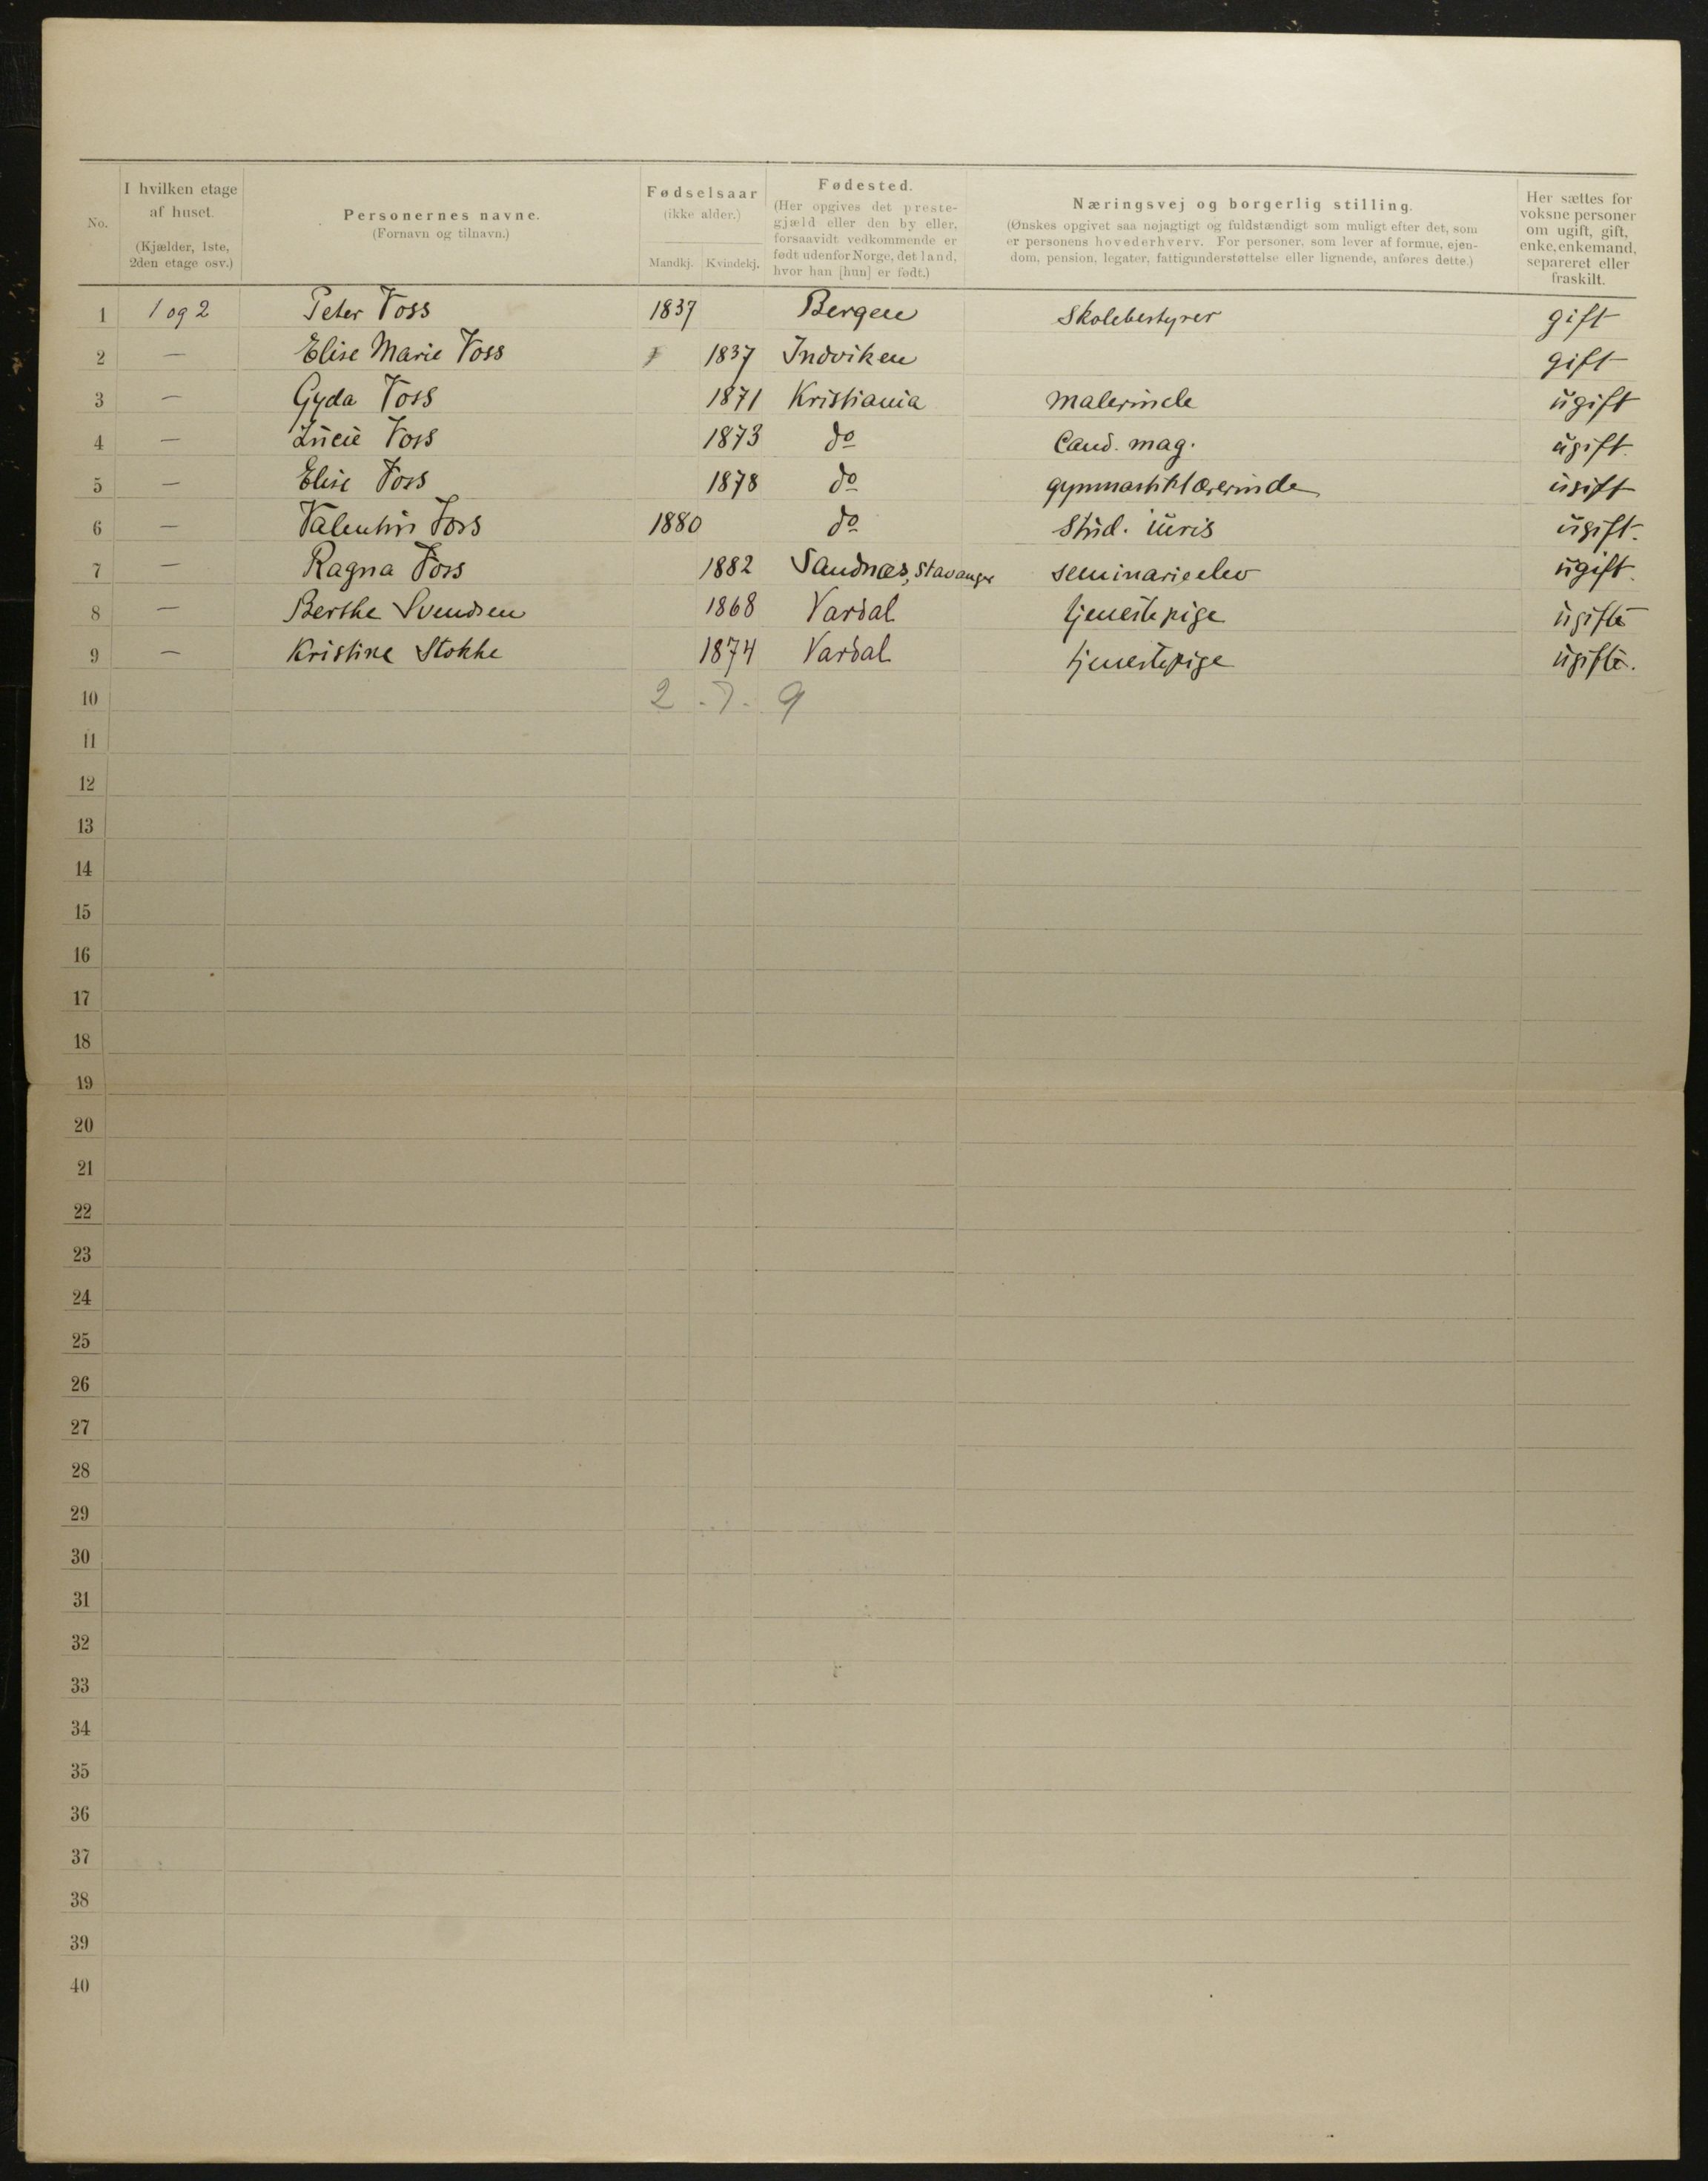 No.
I hvilken etage af huset. (Kjælder, 1ste, 2den etage osv.)
Personernes navne. (Fornavn og tilnavn.)
Fødselsaar (ikke alder.) Mandkj. Kvindekj.
Fødested. (Her opgives det prestegjæld eller den by eller, forsaavidt vedkommende er født udenfor Norge, det land, hvor han [hun] er født.)
Næringsvej og borgerlig stilling. (Ønskes opgivet saa nøjagtigt og fuldstændigt som muligt efter det, som er personens hovederhverv. For personer, som lever af formue, ejendom, pension, legater, fattigunderstøttelse eller lignende, anføres dette.)
Her sættes for voksne personer om ugift, gift, enke, enkemand, separeret eller fraskilt.
1 1 og 2 Peter Voss 1837 Bergen Skolebestyrer gift
2 — Elise Marie Voss 1837 Indviken gift
3 — Gyda Voss 1871 Kristiania Malerinde ugift
4 — Lucie Voss 1873 do Cand. mag. ugift.
5 — Elise Voss 1878 do gymnastiklærerinde ugift
6 — Valentin Voss 1880 do Stud. iuris ugift.
7 — Ragna Voss 1882 Sandnæs, Stavanger seminarieelev ugift.
8 — Berthe Svendsen 1868 Vardal tjenestepige ugifte
9 — Kristine Stokke 1874 Vardal tjenestepige ugifte.
10 2 . 7 . 9
11
12
13
14
15
16
17
18
19
20
21
22
23
24
25
26
27
28
29
30
31
32
33
34
35
36
37
38
39
40